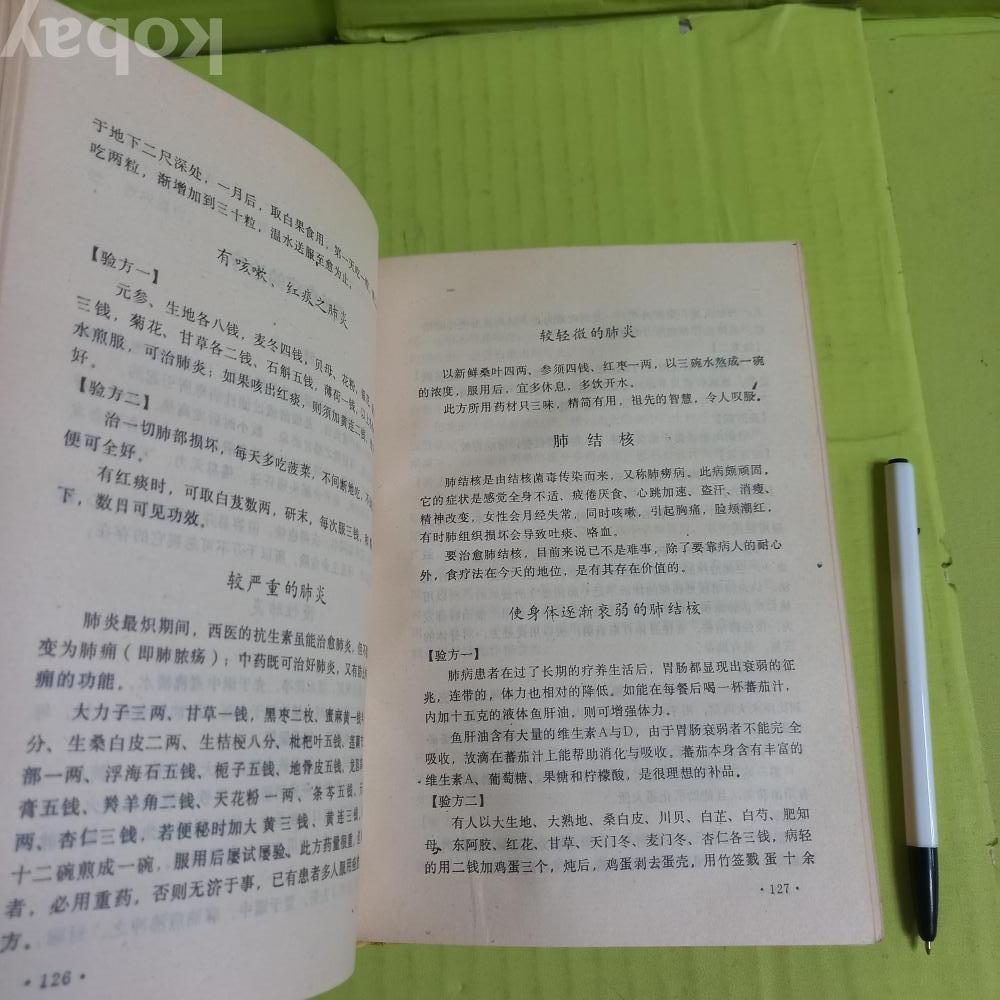 kobay
于地下二尺深处，一月后，取白果食用，第一天吃一
吃两粒，渐增加到三十粒，温水送服至愈为止。
有咳嗽、红痰之肺炎
【验方一】
元参、生地各八钱，麦冬四钱，贝母、花粉、
三钱，菊花、甘草各二钱、石斛五钱，薄荷一钱，以
水煎服，可治肺炎；如果咳出红痰，则须加黄连二钱，
好。
【验方二】
治一切肺部损坏，每天多吃菠菜，不间断地吃，不
便可全好。
有红痰时，可取白芨数两，研末，每次服三钱，和
下，数日可见功效。
较严重的肺炎
肺炎最炽期间，西医的抗生素虽能治愈肺炎，但不
变为肺痈（即肺脓疡）；中药既可治好肺炎，又有防止
痈的功能。
大力子三两、甘草一钱，黑枣二枚、蜜麻黄一钱
分、生桑白皮二两、生桔梗八分、枇杷叶五钱、
部一两、浮海石五钱、栀子五钱、地骨皮五钱、龙胆
膏五钱、羚羊角二钱、天花粉一两、条芩五钱、
两、杏仁三钱，若便秘时加大黄三钱、黄连三钱，
十二碗煎成一碗，服用后屡试屡验。此方药量很重，
者，必用重药，否则无济于事，已有患者多人服用
方。
·126·
较轻微的肺炎
以新鲜桑叶四两、参须四钱、红枣一两，以三碗水熬成一碗
的浓度，服用后，宜多休息，多饮开水。
此方所用药材只三味，精简有用，祖先的智慧，令人叹服。
肺结核
肺结核是由结核菌毒传染而来，又称肺痨病。此病颇顽固。
它的症状是感觉全身不适、疲倦厌食、心跳加速、盗汗、消瘦、
精神改变，女性会月经失常，同时咳嗽，引起胸痛，脸颊潮红，
有时肺组织损坏会导致吐痰、咯血。
要治愈肺结核，目前来说已不是难事，除了要靠病人的耐心
外，食疗法在今天的地位，是有其存在价值的。
使身体逐渐衰弱的肺结核
【验方一】
肺病患者在过了长期的疗养生活后，胃肠都显现出衰弱的征
兆，连带的，体力也相对的降低。如能在每餐后喝一杯蕃茄汁，
内加十五克的液体鱼肝油，则可增强体力。
鱼肝油含有大量的维生素A与D，由于胃肠衰弱者不能完全
吸收，故滴在蕃茄汁上能帮助消化与吸收。蕃茄本身含有丰富的
维生素A、葡萄糖、果糖和柠檬酸，是很理想的补品。
【验方二】
有人以大生地、大熟地、桑白皮、川贝、白芷、白芍、肥知
母、东阿胶、红花、甘草、天门冬、麦门冬、杏仁各三钱，病轻
的用二钱加鸡蛋三个，炖后，鸡蛋剥去蛋壳，用竹签戳蛋十余
·127·